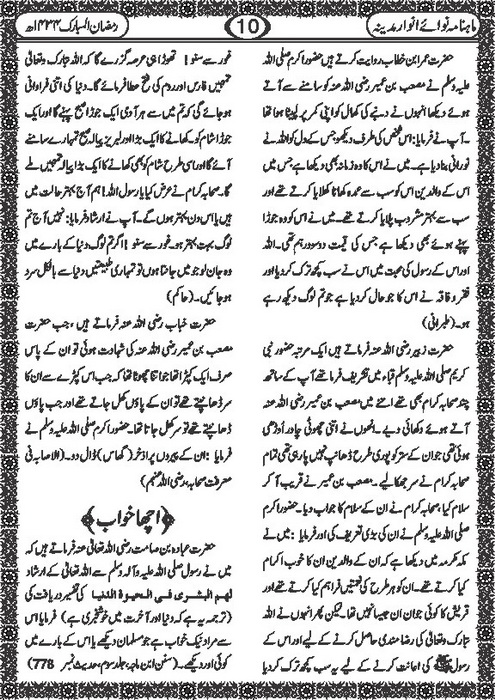 ماہنامہ نوائے انوار مدینہ
10
رمضان المبارک ۱۴۳۴ھ
حضرت عمر ابن خطاب روایت کرتے ہیں حضور اکرم صلی اللہ
علیہ وسلم نے مصعب بن عمیر رضی اللہ عنہ کو سامنے سے آتے
ہوئے دیکھا انہوں نے دنبے کی کھال کو اپنی کمر پر لپیٹا ہوا تھا
۔ آپ نے فرمایا: اس شخص کی طرف دیکھو جس کے دل کو اللہ نے
نورانی بنا دیا ہے۔ میں نے اس کا وہ زمانہ بھی دیکھا ہے جس میں
اس کے والدین اس کو سب سے عمدہ کھانا کھلایا کرتے تھے اور
سب سے بہتر مشروب پلایا کرتے تھے۔ میں نے اس کو وہ جوڑا
پہنے ہوئے بھی دیکھا ہے جس کی قیمت دو سو درہم تھی۔ اللہ
اور اس کے رسول کی محبت میں اس نے سب کچھ ترک کر دیا اور
فقر و فاقہ نے اس کا جو حال کر دیا ہے جو تم لوگ دیکھ رہے
ہو۔ (طبرانی)
حضرت زبیر رضی اللہ عنہ فرماتے ہیں ایک مرتبہ حضور نبی
کریم صلی اللہ علیہ وسلم قباء میں تشریف فرما تھے، آپ کے ساتھ
چند صحابہ کرام بھی تھے اتنے میں مصعب بن عمیر رضی اللہ عنہ
آتے ہوئے دکھائی دیے۔ انھوں نے اتنی چھوٹی چادر اوڑھی
ہوئی تھی جو ان کے ستر کو پوری طرح ڈھانپ نہیں پا رہی تھی تمام
صحابہ کرام نے سر جھکا لیے۔ مصعب بن عمیر نے قریب آ کر
سلام کیا صحابہ کرام نے ان کے سلام کا جواب دیا۔ حضور اکرم
صلی اللہ علیہ وسلم نے ان کی بڑی تعریف کی اور فرمایا: میں نے
مکہ مکرمہ میں دیکھا ہے کہ ان کے والدین ان کا خوب اکرام
کیا کرتے تھے۔ ان کو ہر طرح کی نعمتیں فراہم کیا کرتے تھے اور
قریش کا کوئی جوان ان جیسا نہیں تھا۔ لیکن پھر انہوں نے اللہ
تبارک وتعالیٰ کی رضا مندی حاصل کرنے کے لیے اور اس کے
رسول ﷺ کی اعانت کرنے کے لیے یہ سب کچھ ترک کر دیا
غور سے سنو! تھوڑا ہی عرصہ گزرے گا کہ اللہ تبارک وتعالیٰ
تمہیں فارس اور روم کی فتح عطا فرمائے گا۔ دنیا کی اتنی فراوانی
ہو جائے گی کہ تم میں سے ہر آدمی ایک جوڑا صبح پہنے گا اور ایک
جوڑا شام کو۔ کھانے کا ایک بڑا اور لبریز پیالہ صبح تمہارے سامنے
آئے گا اور اسی طرح شام کو بھی کھانے کا ایک بڑا پیالہ تمہیں ملے
گا۔ صحابہ کرام نے عرض کیا یا رسول اللہ! ہم آج بہتر حالت میں
ہیں یا اس دن بہتر ہوں گے۔ آپ نے ارشاد فرمایا: نہیں آج تم
لوگ بہت بہتر ہو۔ غور سے سنو! اگر تم لوگ دنیا کے بارے میں
وہ جان لو جو میں جانتا ہوں تو تمہاری طبیعتیں دنیا سے بالکل سرد
ہو جائیں۔ (حاکم)
حضرت خباب رضی اللہ عنہ فرماتے ہیں، جب حضرت
مصعب بن عمیر رضی اللہ عنہ کی شہادت ہوئی تو ان کے پاس
صرف ایک کپڑا تھا جو اتنا چھوٹا تھا کہ جب اس کپڑے سے ان کا
سر ڈھانپتے تھے تو ان کے پاؤں کھل جاتے تھے اور جب پاؤں
ڈھانپتے تھے تو سر کھل جاتا تھا۔ حضور اکرم صلی اللہ علیہ وسلم نے
فرمایا: ان کے پیروں پر اذخر (گھاس) ڈال دو۔ (الاصابہ فی
معرفت صحابہ رضی اللہ عنہم)
﴿اچھا خواب﴾
حضرت عبادہ بن صامت رضی اللہ تعالیٰ عنہ فرماتے ہیں کہ
میں نے رسول صلی اللہ علیہ وآلہ وسلم سے اللہ تعالیٰ کے ارشاد
لھم البشری فی الحیوۃ الدنیا کی تفسیر دریافت کی
(ترجمہ یہ ہے کہ دنیا اور آخرت میں خوشخبری ہے) فرمایا اس
سے مراد نیک خواب ہے جو مسلمان دیکھے یا اس کے بارے میں
کوئی اور دیکھے۔ (سنن ابن ماجہ، جلد سوم، حدیث نمبر 778)